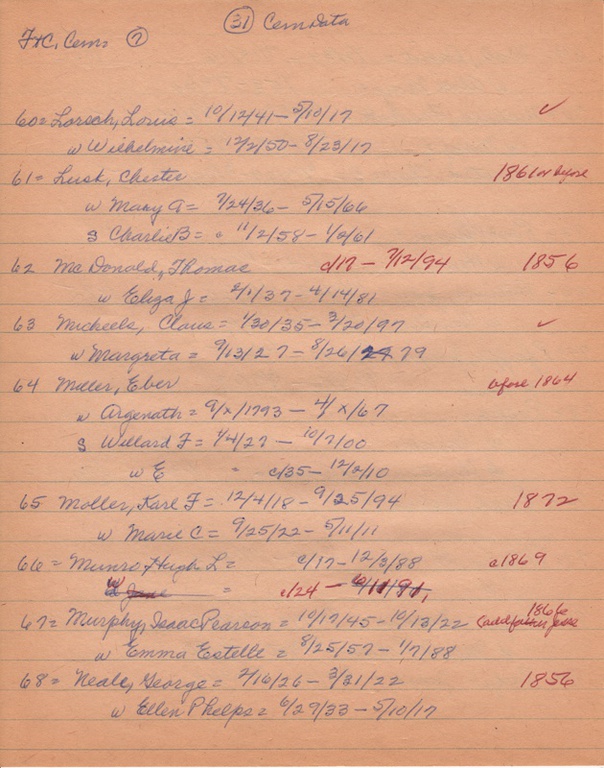 (31) Cem Data
F+C, Cems (7)
60 = Lorsch, Louis = 10/12/41 - 5/10/17 ✓
w Wilhelmine = 12/2/50 - 8/23/17
61 = Lusk, Chester 1861 or before
w Mary A = 7/24/36 - 5/15/66
S Charlie B = c 11/2/58 - 1/2/61
62 McDonald, Thomas c/17 - 7/12/94 1856
w Eliza J = 2/1/37 - 4/14/81
63 Micheels, Claus = 1/30/35 - 3/20/97 ✓
w Margreta = 9/13/27 - 8/26/79
64 Miller, Eber before 1864
w Argenath = 9/x/1793 - 4/x/67
S Willard F = 1/4/27 - 10/7/00
w E = c/35 - 12/2/10
65 Moller, Karl F = 12/4/18 - 9/25/94 1872
w Marie C = 9/25/22 - 5/11/11
66 = Munro, Hugh L = c/17 - 12/3/88 c1869
w Jane = c/24 - 6/11/91
67 = Murphy, Isaac Pearson = 10/17/45 - 10/13/22 1866
(add father Jesse
w Emma Estelle = 8/25/57 - 1/7/88
68 = Neale, George = 2/16/26 - 3/31/22 1856
w Ellen Phelps = 6/29/33 - 5/10/17